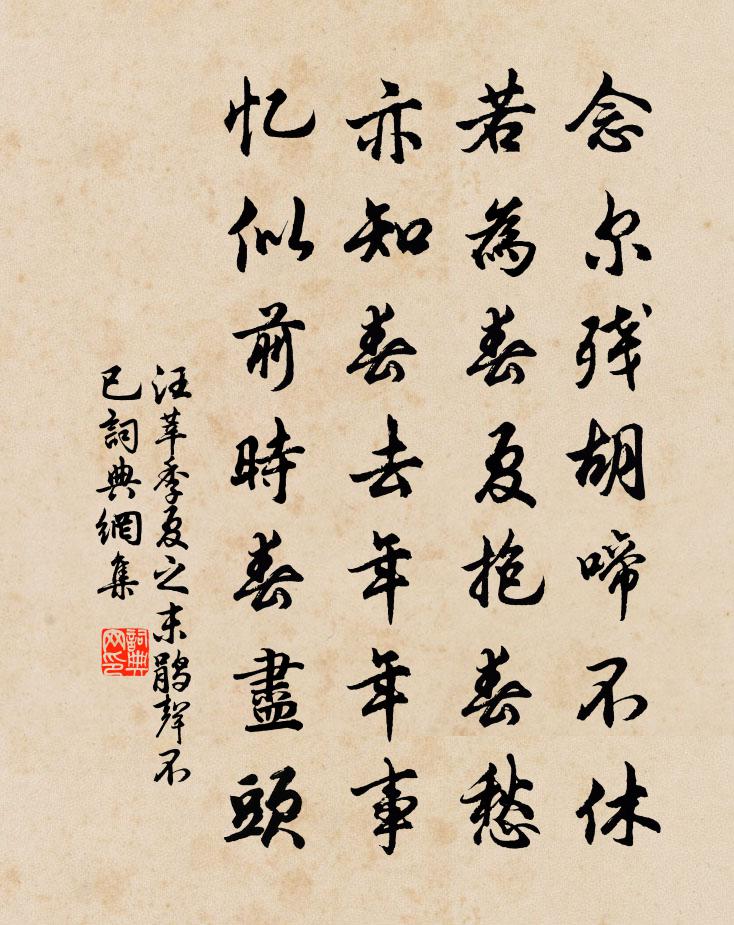 念尔残胡啼不休
若為春夏抱春愁
亦知春去年年事
忆似前時春盡頭
汪莘季夏之末鹃聲不
已詞典網集
詞典
网印